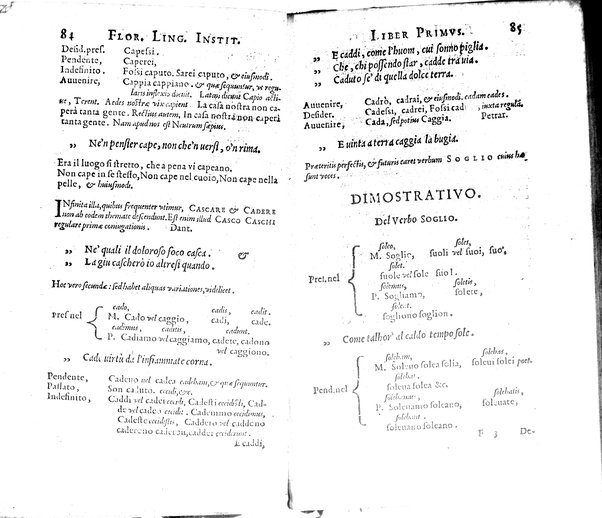 84 FLOR. LING. INSTIT.
Desid. pres. Capessi.
Pendente, Caperei,
Indefinito. Fossi caputo. Sarei caputo, & eiusmodi.
Auuenire, Cappia cappiano. & quæ sequuntur, vt regu-
laris inflexio docuit. Latinis dicunt Capio acti-
ue, Terent. Aedes nostræ vix capient. La casa nostra non ca-
perà tanta gente. Rectius autem, In casa nostra non caperà
tanta gente. Nam apud nos est Neutrum sæpius.
„ Ne'l pensier cape, non che'n uersi, o'n rima.
Era il luogo sì stretto, che a pena vi capeano.
Non cape in se stesso, Non cape nel cuoio, Non cape nella
pelle, & huiusmodi.
INfinita illa, quibus frequenter vtimur, CASCARE & CADERE
non ab eodem themate descendunt. Est enim illud CASCO CASCHI
regulare primæ coniugationis. Dant.
„ Ne' quali il doloroso foco casca. &
„ La giu cascherò io altresì quando.
Hoc vero secundæ: sed habet aliquas variationes, videlicet.
cado, cadis, cadit.
M. Cado vel caggio, cadi, cade.
Pres nel
cadimus. caditis, cadunt.
P. Cadiamo vel caggiamo, cadete, cadono
vel caggiono.
„ Cade uirtù da l'infiammate corna.
Pendente, Cadeuo vel cadea cadebam, & quæ sequuntur.
Passato, Son caduto. cecidi, &c.
Indefinito, Caddi vel cadei cecidi, Cadesti cecidisti, Cad-
de vel cadeo cecidit. Cademmo cecidimus,
Cadeste cecidistis, Caddero vel caddeno
caderono caderon, cadder ceciderunt.
E caddi,
LIBER PRIMVS. 85
„ E caddi, come l'huom, cui sonno piglia.
„ Che, chi possendo star, cadde tra uia.
„ Caduto se' di quella dolce terra.
Auuenire, Cadrò, cadrai, & eiusmodi, cadam cades.
Desider. Cadessi, cadrei, Fossi cad , iuxta regulā.
Auuenire, Cada, sed potius Caggia. Petrar.
„ E uinta a terra caggia la bugia.
Præteritis perfectis, & futuris caret verbum SOGLIO cuius hæ
sunt voces.
DIMOSTRATIVO.
Del Verbo SOGLIO.
soleo, soles,
M. Soglio, suoli vel suoi, suo'.
solet.
suole vel sole suol.
Pres. nel
solemus, soletis,
P. Sogliamo, solete,
solent.
sogliono soglion.
„ Come talhor' al caldo tempo sole.
solebam, solebas,
M. Soleuo solea solia, soleui solei poet.
solebat.
soleua solea &c.
Pend. nel
solebamus, solebatis,
P. Soleuamo soleamo, soleuate,
solebant.
soleuano soleano.
F 3 De-